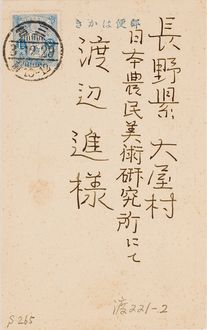 きかは便郵
長野県大屋村
日本農民美術研究所にて
渡辺進様
渡221-2
S265